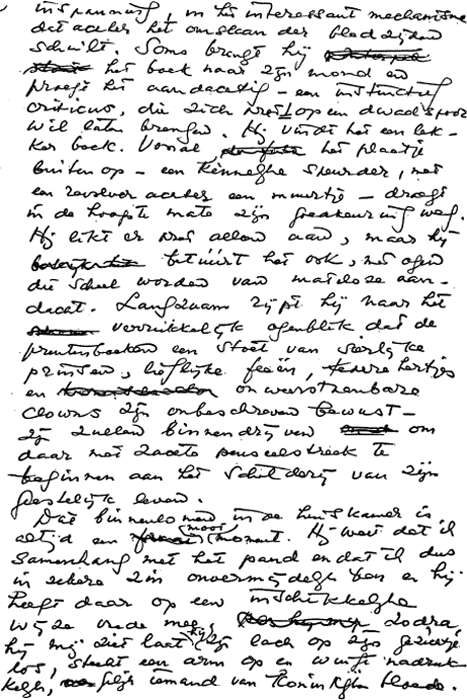 inspanning, in het interessant mechanisme
dat achter het omslaan der bladzijden
schuilt. Soms brengt hij
het boek naar zijn mond en
proeft het aandachtig – een instinctief
criticus, die zich niet op een dwaalspoor
wil laten brengen. Hij vindt het een lek-
ker boek. Vooral het plaatje
buiten op – een speurder, met
een revolver achter een muurtje – draagt
in de hoogste mate zijn goedkeuring weg.
Hij likt er niet alleen aan, maar hij
betuurt het ook, met ogen
die scheel worden van mateloze aan-
dacht. Langzaam rijpt hij naar het
verrukkelijk ogenblik dat de
prentenboeken een stoet van sierlijke
prinsen, lieflijke feeën, tedere hertjes
en onweerstaanbare
clowns zijn onbeschreven bewust-
zijn zullen binnendrijven om
daar met zachte penseelstreek te
beginnen aan het schilderij van zijn
geestelijk leven.
Dat binnenkomen in de huiskamer is
altijd een mooi moment. Hij weet dat ik
samenhang met het pand en dat ik dus
in zekere zin onvermijdelijk ben en hij
heeft daar op een inschikkelijke
wijze vrede mee. Zodra
hij mij ziet laat hij zijn lach op zijn gezichtje
los, steekt een arm op en wuift nadruk-
kelijk, iemand van koninklijken bloede.